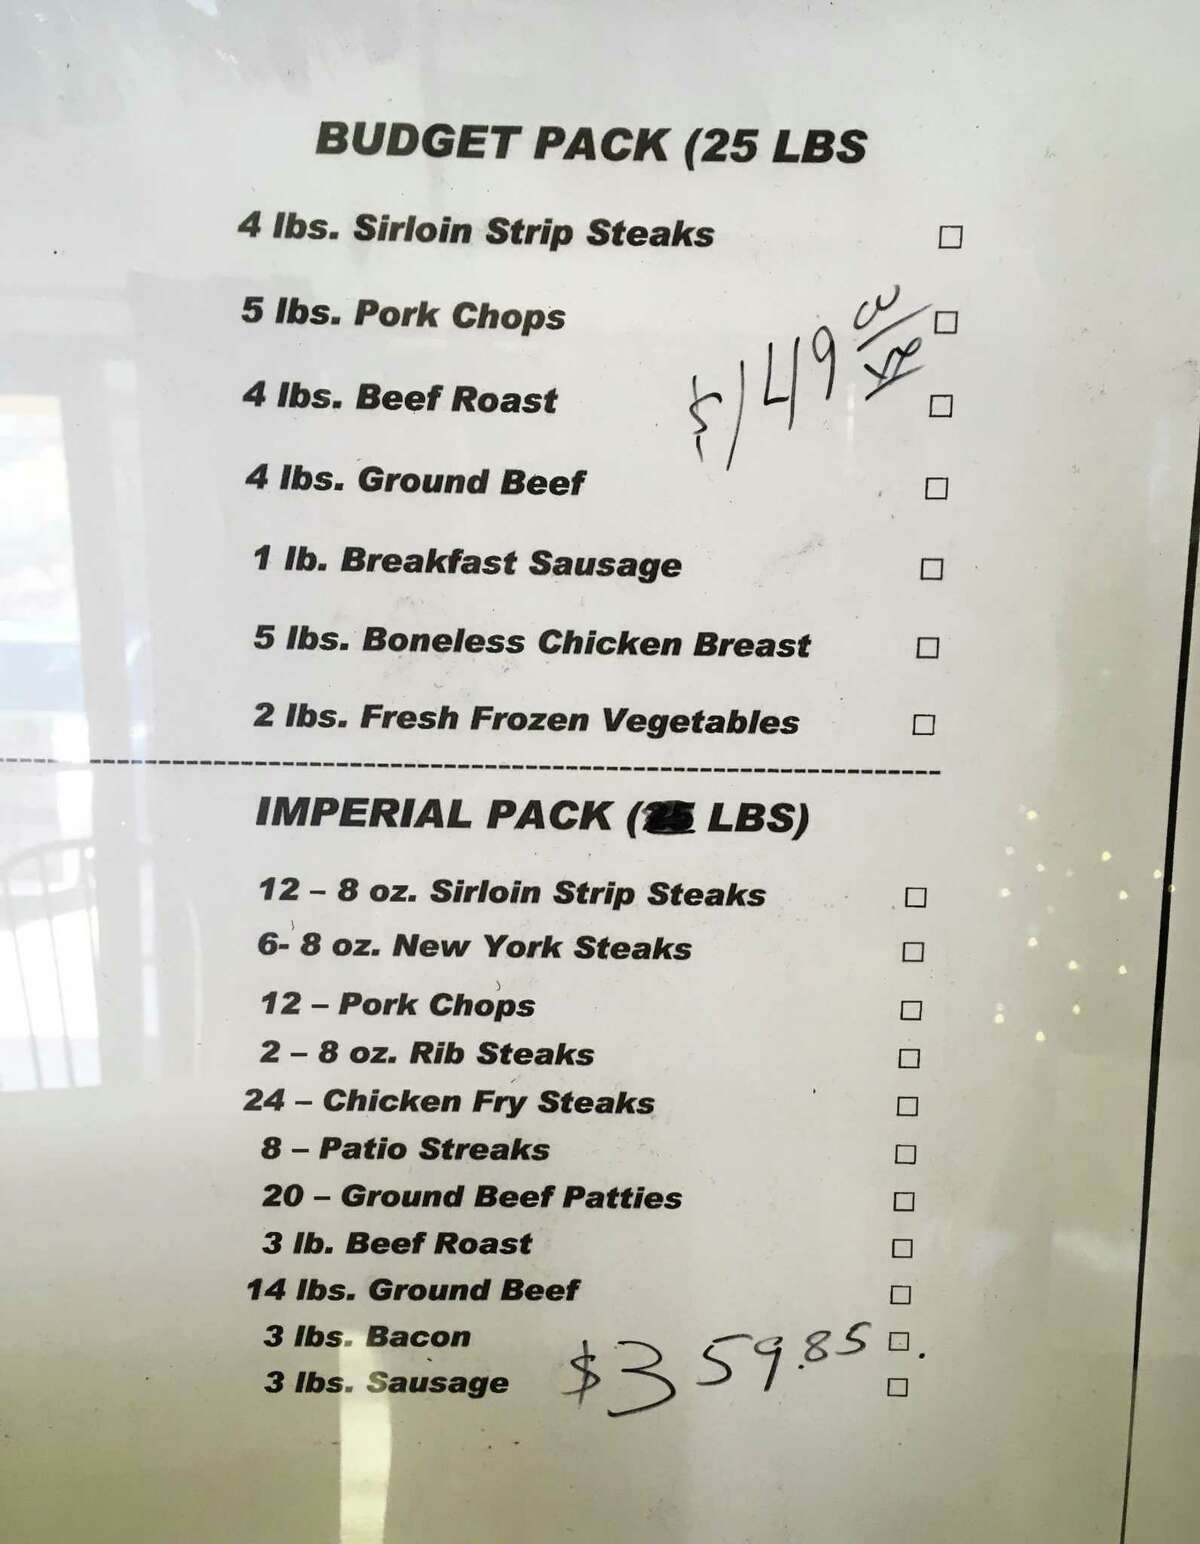 BUDGET PACK (25 LBS
4 lbs. Sirloin Strip Steaks
5 lbs. Pork Chops
4 lbs. Beef Roast
$149
4 lbs. Ground Beef
1 lb. Breakfast Sausage
5 lbs. Boneless Chicken Breast
2 lbs. Fresh Frozen Vegetables
IMPERIAL PACK ( LBS)
12 – 8 oz. Sirloin Strip Steaks
6- 8 oz. New York Steaks
12 – Pork Chops
2 – 8 oz. Rib Steaks
24 – Chicken Fry Steaks
8 – Patio Streaks
20 – Ground Beef Patties
3 lb. Beef Roast
14 lbs. Ground Beef
3 lbs. Bacon
3 lbs. Sausage
$359.85